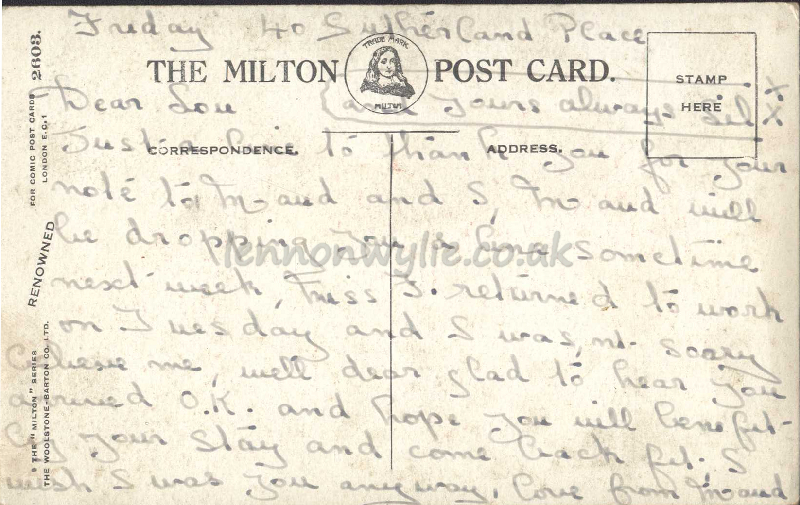 Friday 40 Sutherland Place
THE MILTON POST CARD.
TRADE MARK
MILTON
STAMP
HERE
Dear Lou
and yours always Sil X X
CORRESPONDENCE.
ADDRESS.
Just a line to thank you for your
note to Maud and I, Maud will
be dropping you a line sometime
next week, Miss F. returned to work
on Tuesday and I was,nt sorry
believe me, well dear glad to hear you
arrived O.K. and hope you will benefit
by your stay and come back fit. I
wish I was you anyway, love from Maud
lennonwylie.co.uk
2603.
FOR COMIC POST CARDS
LONDON E.C.1
RENOWNED
THE "MILTON" SERIES
THE WOOLSTONE-BARTON CO. LTD.